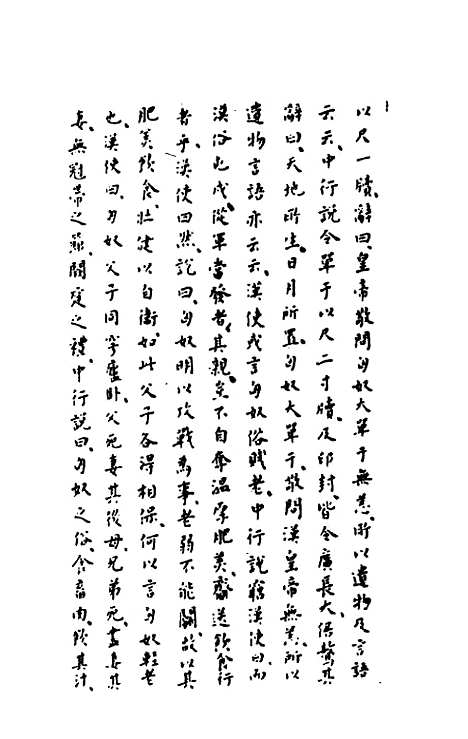 以尺一牘、辭曰、皇帝敬問匈奴大單于無恙、所以遺物及言語
云云、中行説令單于以尺二寸牘、及印封、皆令廣長大、倨驁其
辭曰、天地所生、日月所置、匈奴大單于、敬問漢皇帝無恙、所以
遺物言語亦云云、漢使或言匈奴俗賤老、中行説窮漢使曰、而
漢俗屯戍、從軍當發者、其親、豈不自奪温厚肥美、齎送飲食行
者乎、漢使曰然、説曰、匈奴明以攻戰為事、老弱不能鬭、故以其
肥美飲食、壯健以自衛、如此父子各得相保、何以言匈奴輕老
也、漢使曰、匈奴父子同穹廬卧、父死妻其後母、兄弟死、盡妻其
妻、無冠帶之節、闕庭之禮、中行説曰、匈奴之俗、食畜肉、飲其汁、